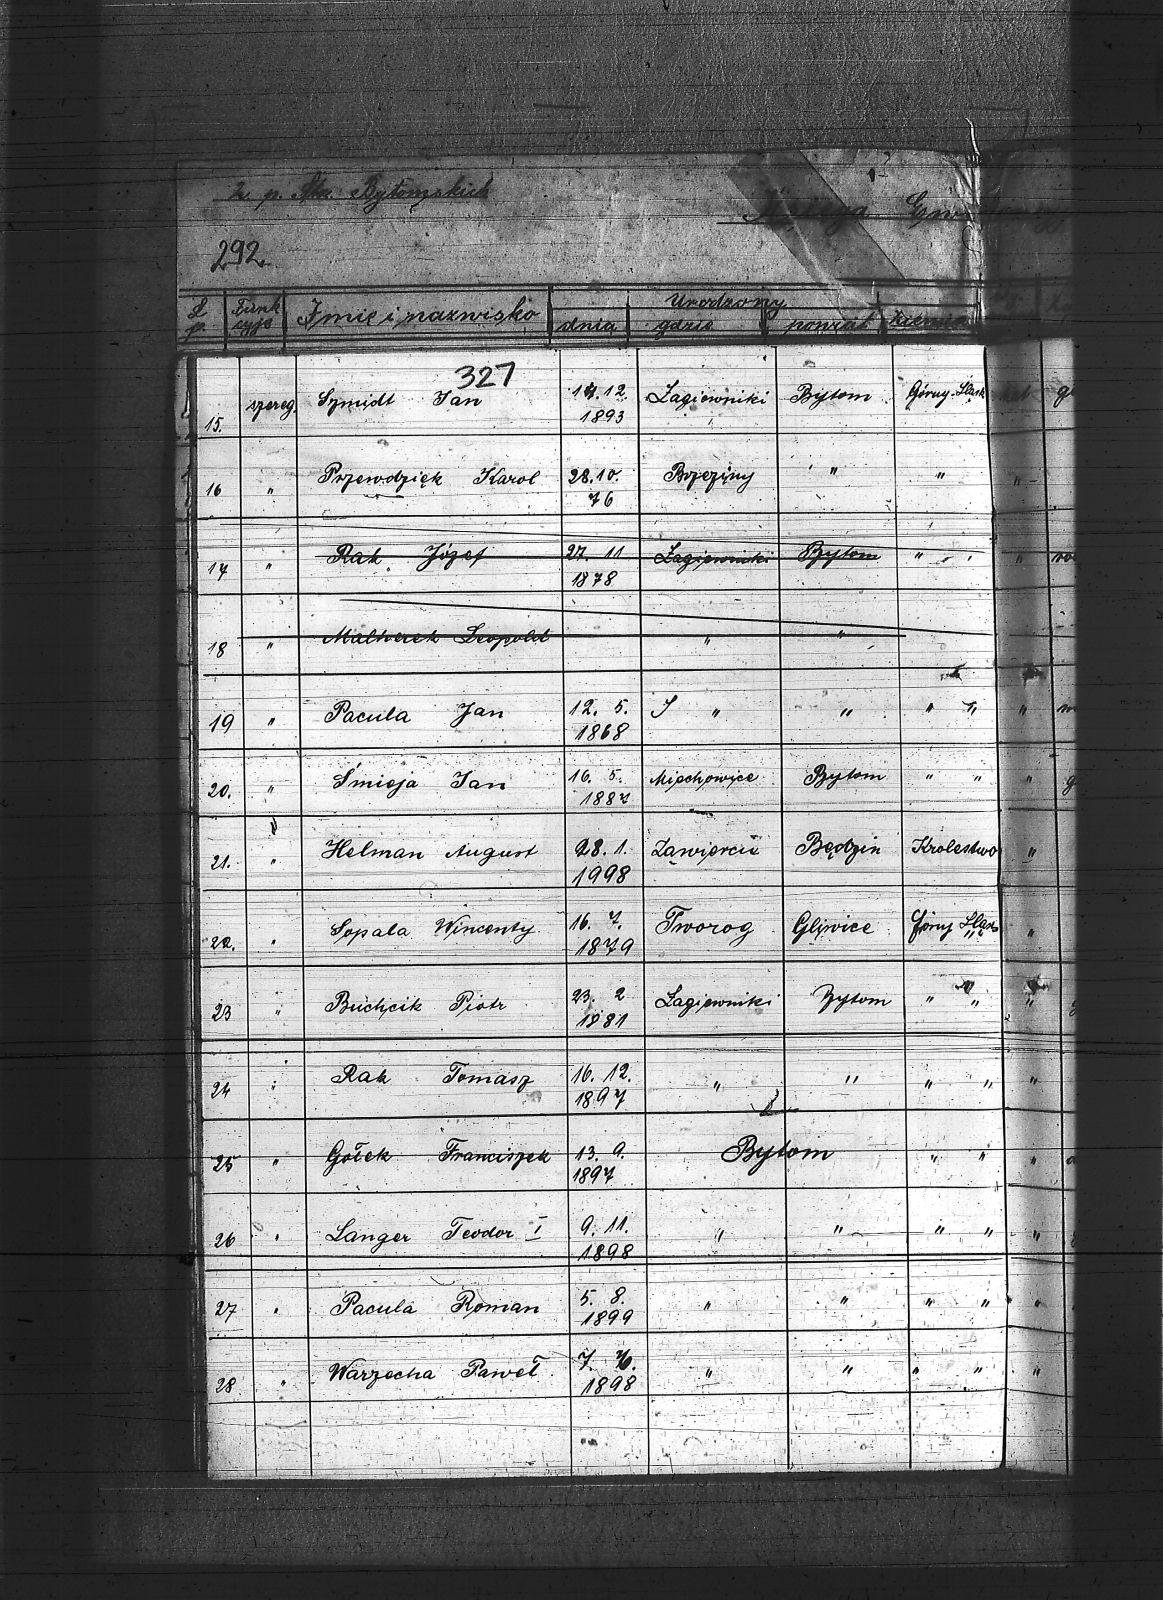 2 p. Strz. Bytomskich
Księga
292
L.p. Funkcyje Imię i nazwisko Urodzony
dnia gdzie powiat ziemia
327
15. szereg. Szmidt Jan 14.12. 1893 Łagiewniki Bytom Górny-Śląsk
16 " Przewdzięk Karol 28.10. 76 Brzeziny " "
17 " Rak Józef 27. 11 1878 Łagiewniki Bytom " "
18 " Malwerek Leopold " "
19 " Pacula Jan 12. 5. 1868 " " " "
20. " Śmieja Jan 16. 5. 1887 Miechowice Bytom " "
21. " Helman August 28. 1. 1998 Zawiercie Będzin Królestwo "
22. " Sopala Wincenty 16. 7. 1879 Tworog Gliwice Górny Śląsk "
23 " Buchcik Piotr 23. 2 1881 Łagiewniki Bytom " " "
24 " Rak Tomasz 16. 12. 1897 " " " " "
25 " Gołek Franciszek 13. 9. 1897 Bytom " " "
26 " Langer Teodor I 9. 11. 1898 " " " " "
27 " Pacula Roman 5. 8. 1899 " " " " "
28 " Warzecha Paweł 7. 1898 " " " " "